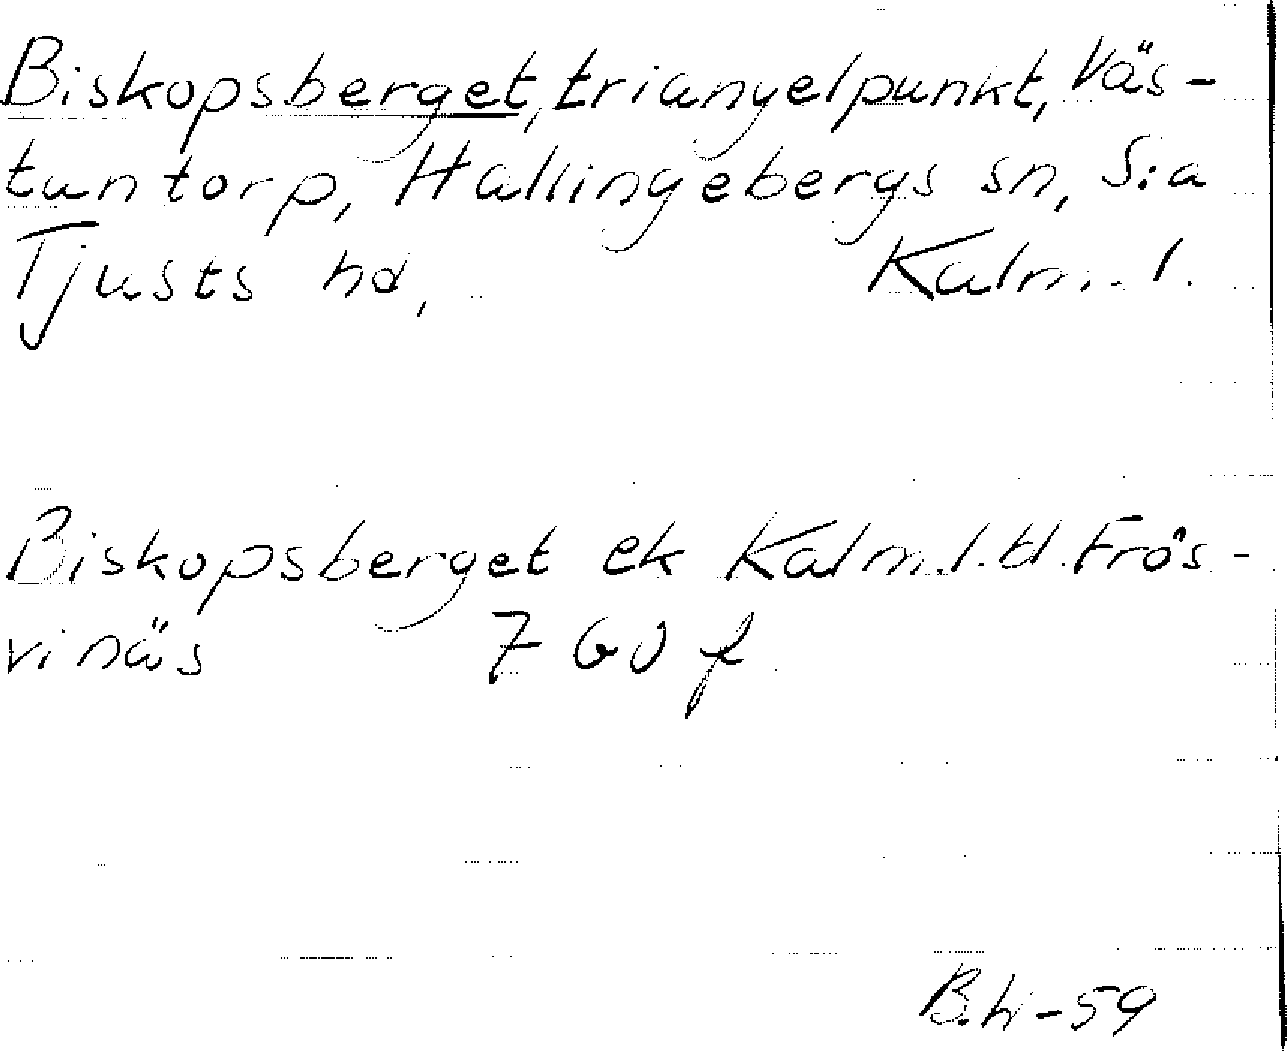 Biskopsberget, triangelpunkt, Väs-
tantorp, Hallingebergs sn, S:a
Tjusts hd, Kalm. l.
Biskopsberget ek Kalm.l.bl. Frös-
vinäs 7 GV f
B.Li-59